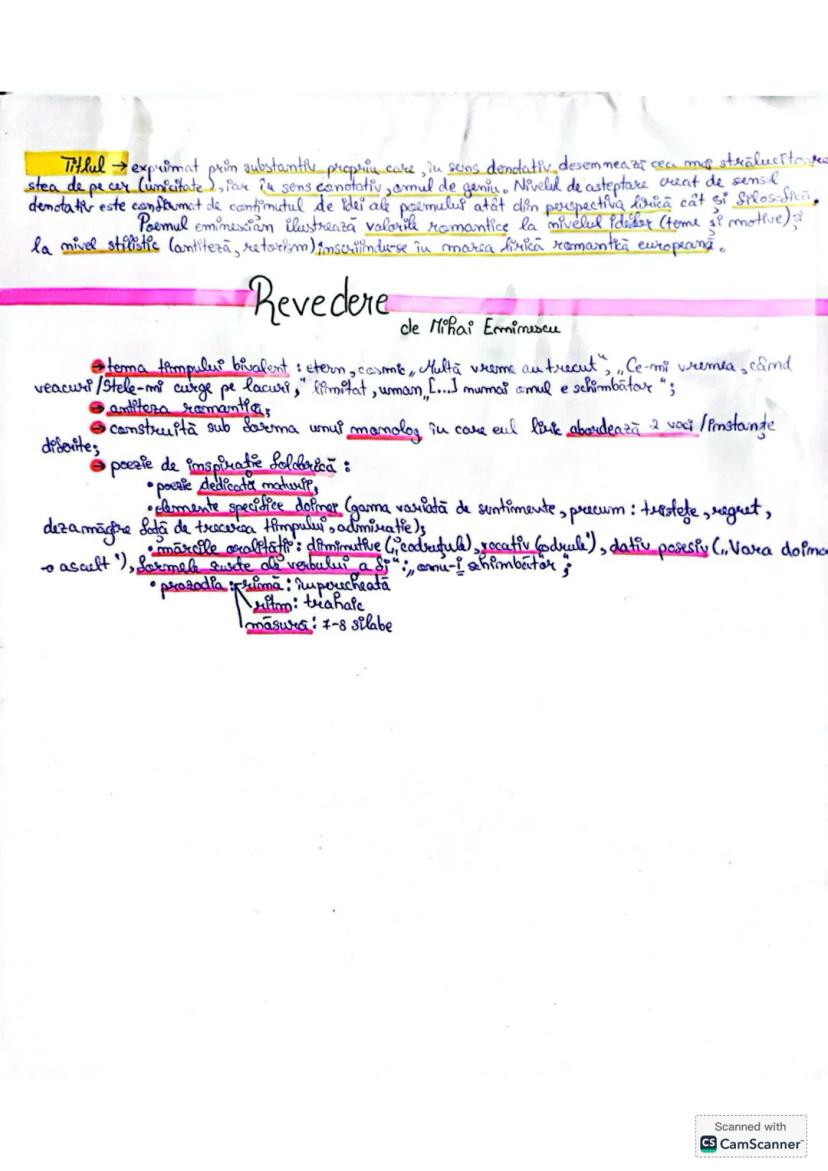 Titlul → exprimat prin substantiv propriu care, în sens denotativ desemnează cea mai strălucitoare
stea de pe cer (unicitate), iar în sens conotativ, omul de geniu. Nivelul de asteptare creat de sensul
denotativ este confirmat de conținutul de idei ale poemului atât din perspectiva lirică cât și filosofică.
Poemul eminescian ilustrează valorile romantice la nivelul ideilor (teme și motive);
la nivel stilistic (antiteză, retorism) înscriindu-se în marea lirică romantică europeană.
Revedere
de Mihai Eminescu
→ tema timpului bivalent: etern, cosmic „Multă vreme au trecut", „Ce-mi vremea, când
veacuri/Stele-mi curge pe lacuri," limitat, uman „[...] numai omul e schimbător";
→ antiteza romantică;
→ construită sub forma unui monolog în care eul liric abordează 2 voci/instanțe
diferite;
→ poezie de inspirație folclorică:
• poezie dedicată naturii,
• elemente specifice doinei (gama variată de sentimente, precum: tristețe, regret,
dezamăgire față de trecerea timpului, admirație);
• mărcile oralității: diminutive („codruțule), vocativ (codrule"), dativ posesiv („Vara doina
-o ascult"), formele scurte ale verbului a fi": „omu-i schimbător";
• prozodia: rimă: împerecheată
ritm: trohaic
măsură: 7-8 silabe
Scanned with
CS CamScanner